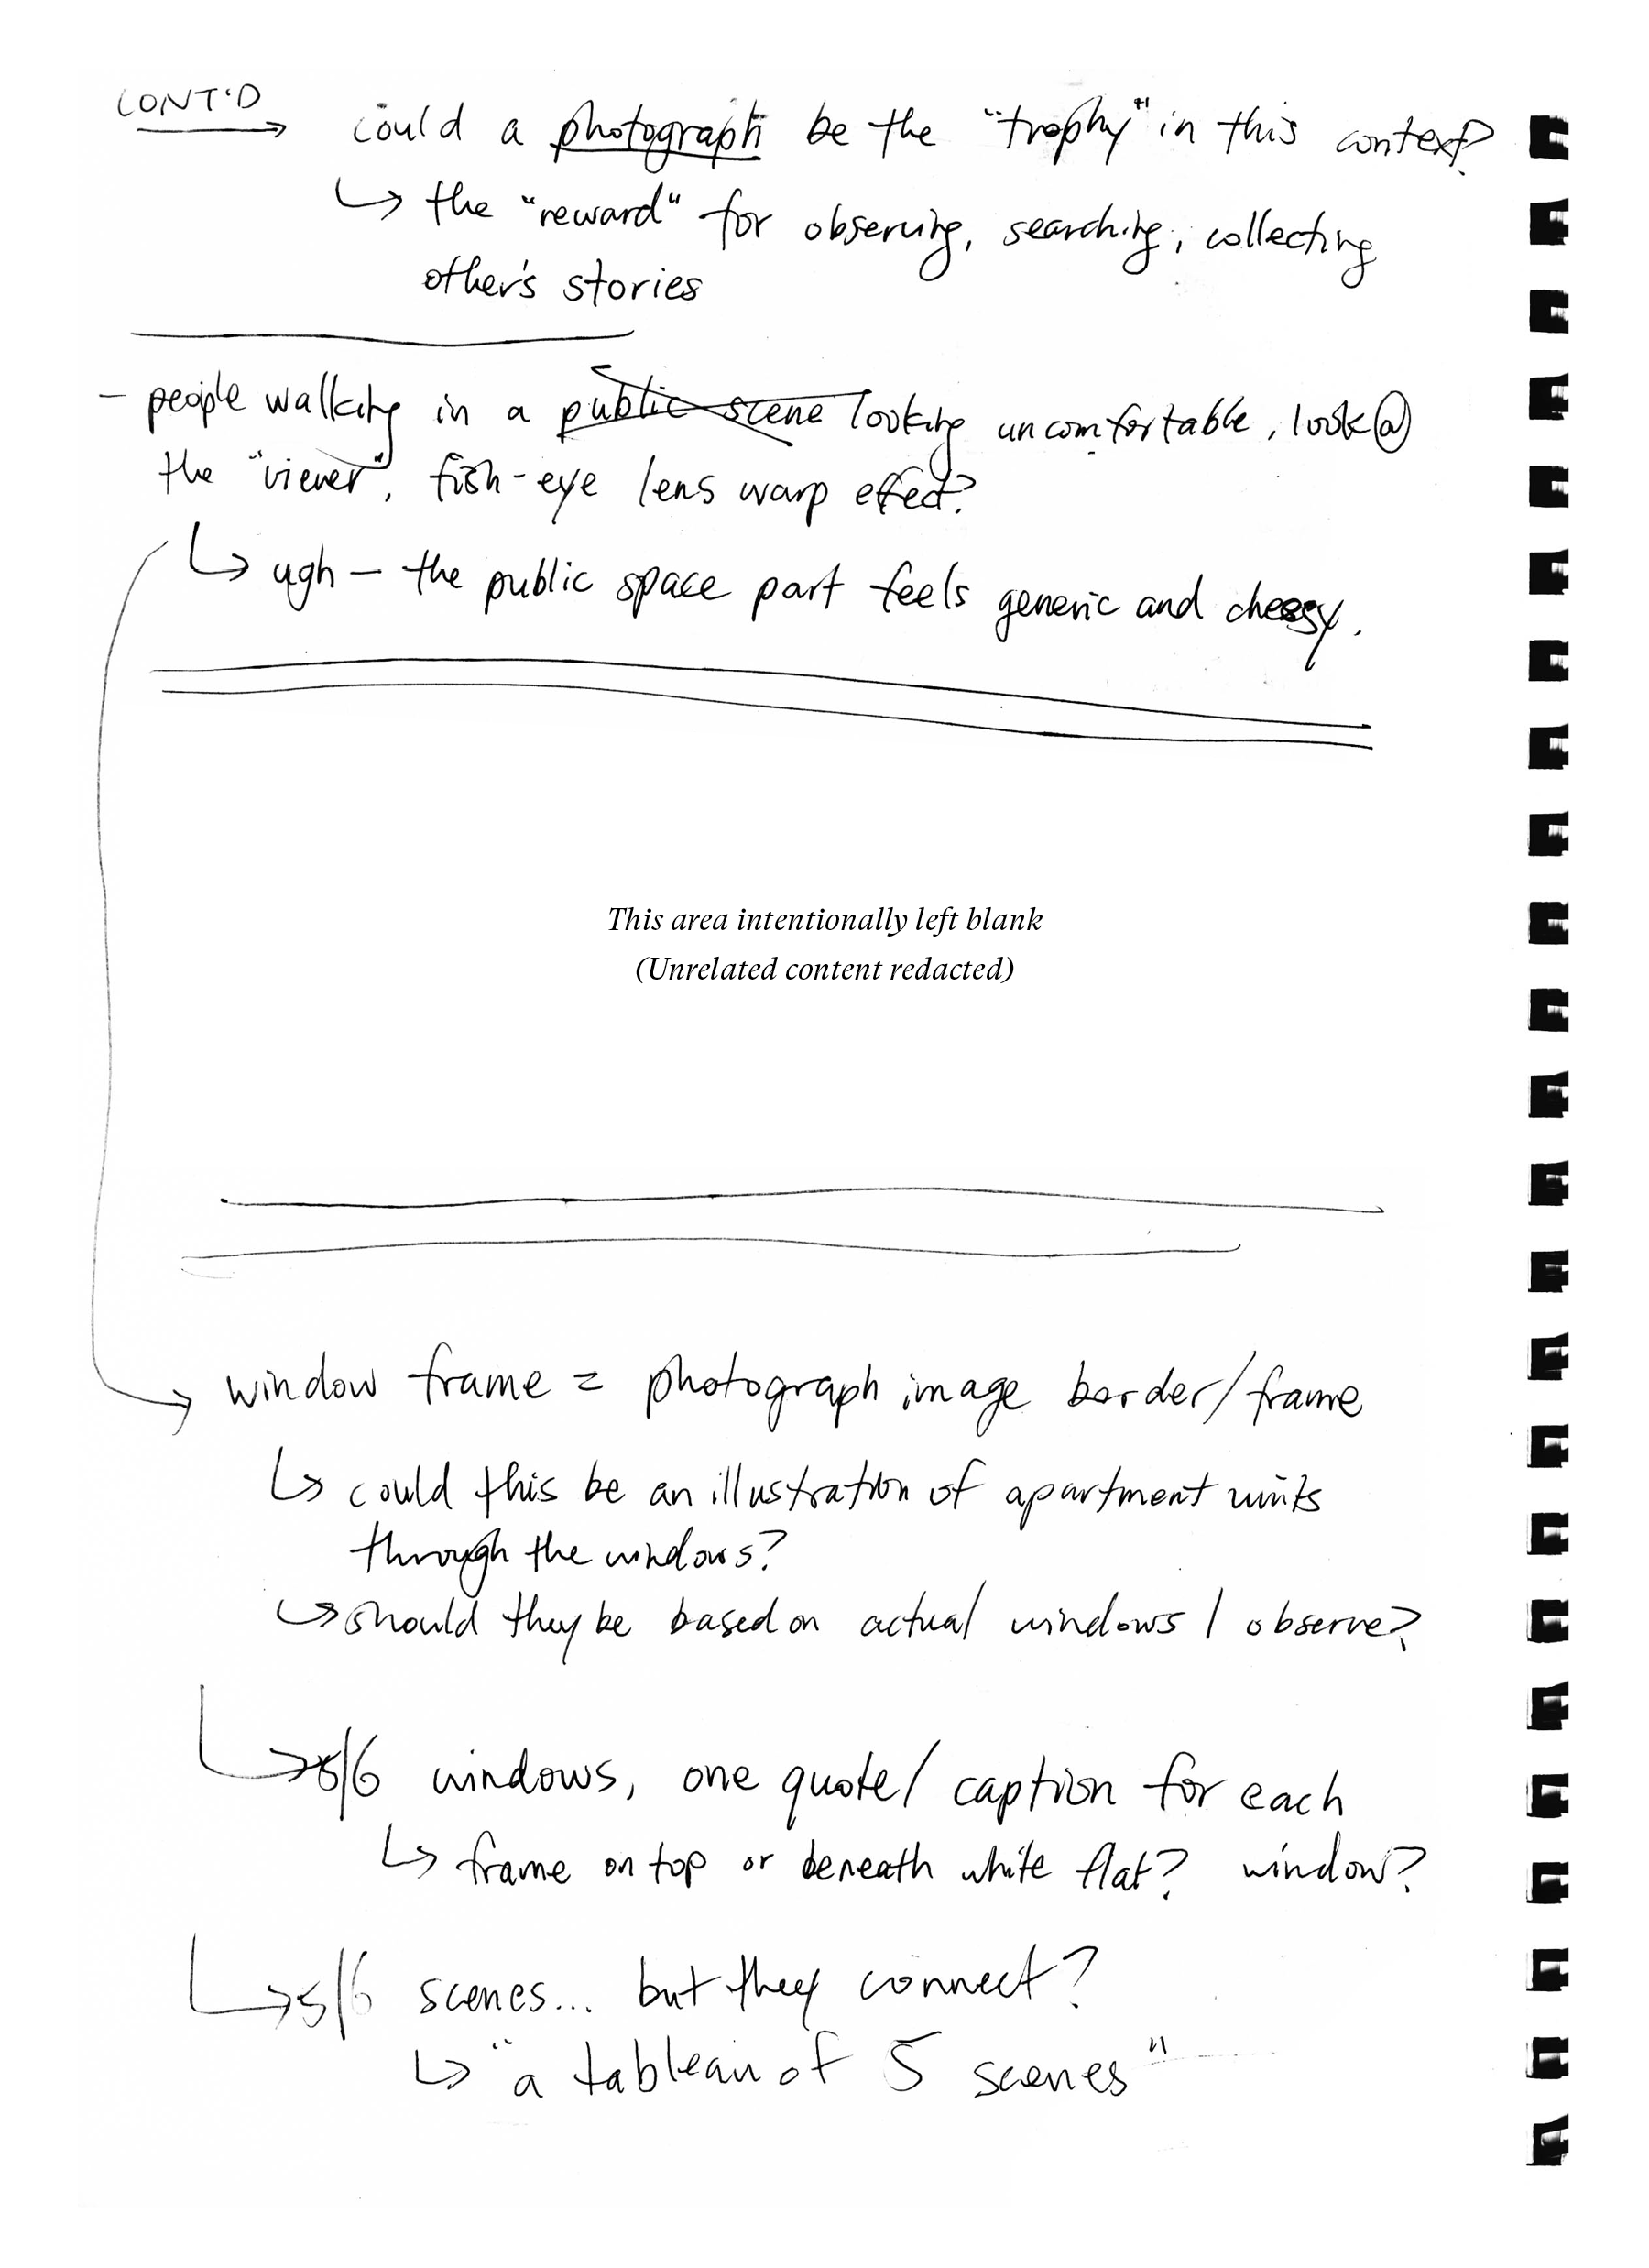 CONT'D
→ could a photograph be the "trophy" in this context?
↳ the "reward" for observing, searching, collecting
other's stories
- people walking in a public scene looking uncomfortable, look@
the "viewer", fish-eye lens warp effect?
↳ ugh — the public space part feels generic and cheesy.
This area intentionally left blank
(Unrelated content redacted)
→ window frame = photograph image border/frame
↳ could this be an illustration of apartment units
through the windows?
↳ should they be based on actual windows I observe?
↳ 5/6 windows, one quote/caption for each
↳ frame on top or beneath white flat? window?
↳ 5/6 scenes... but they connect?
↳ "a tableau of 5 scenes"